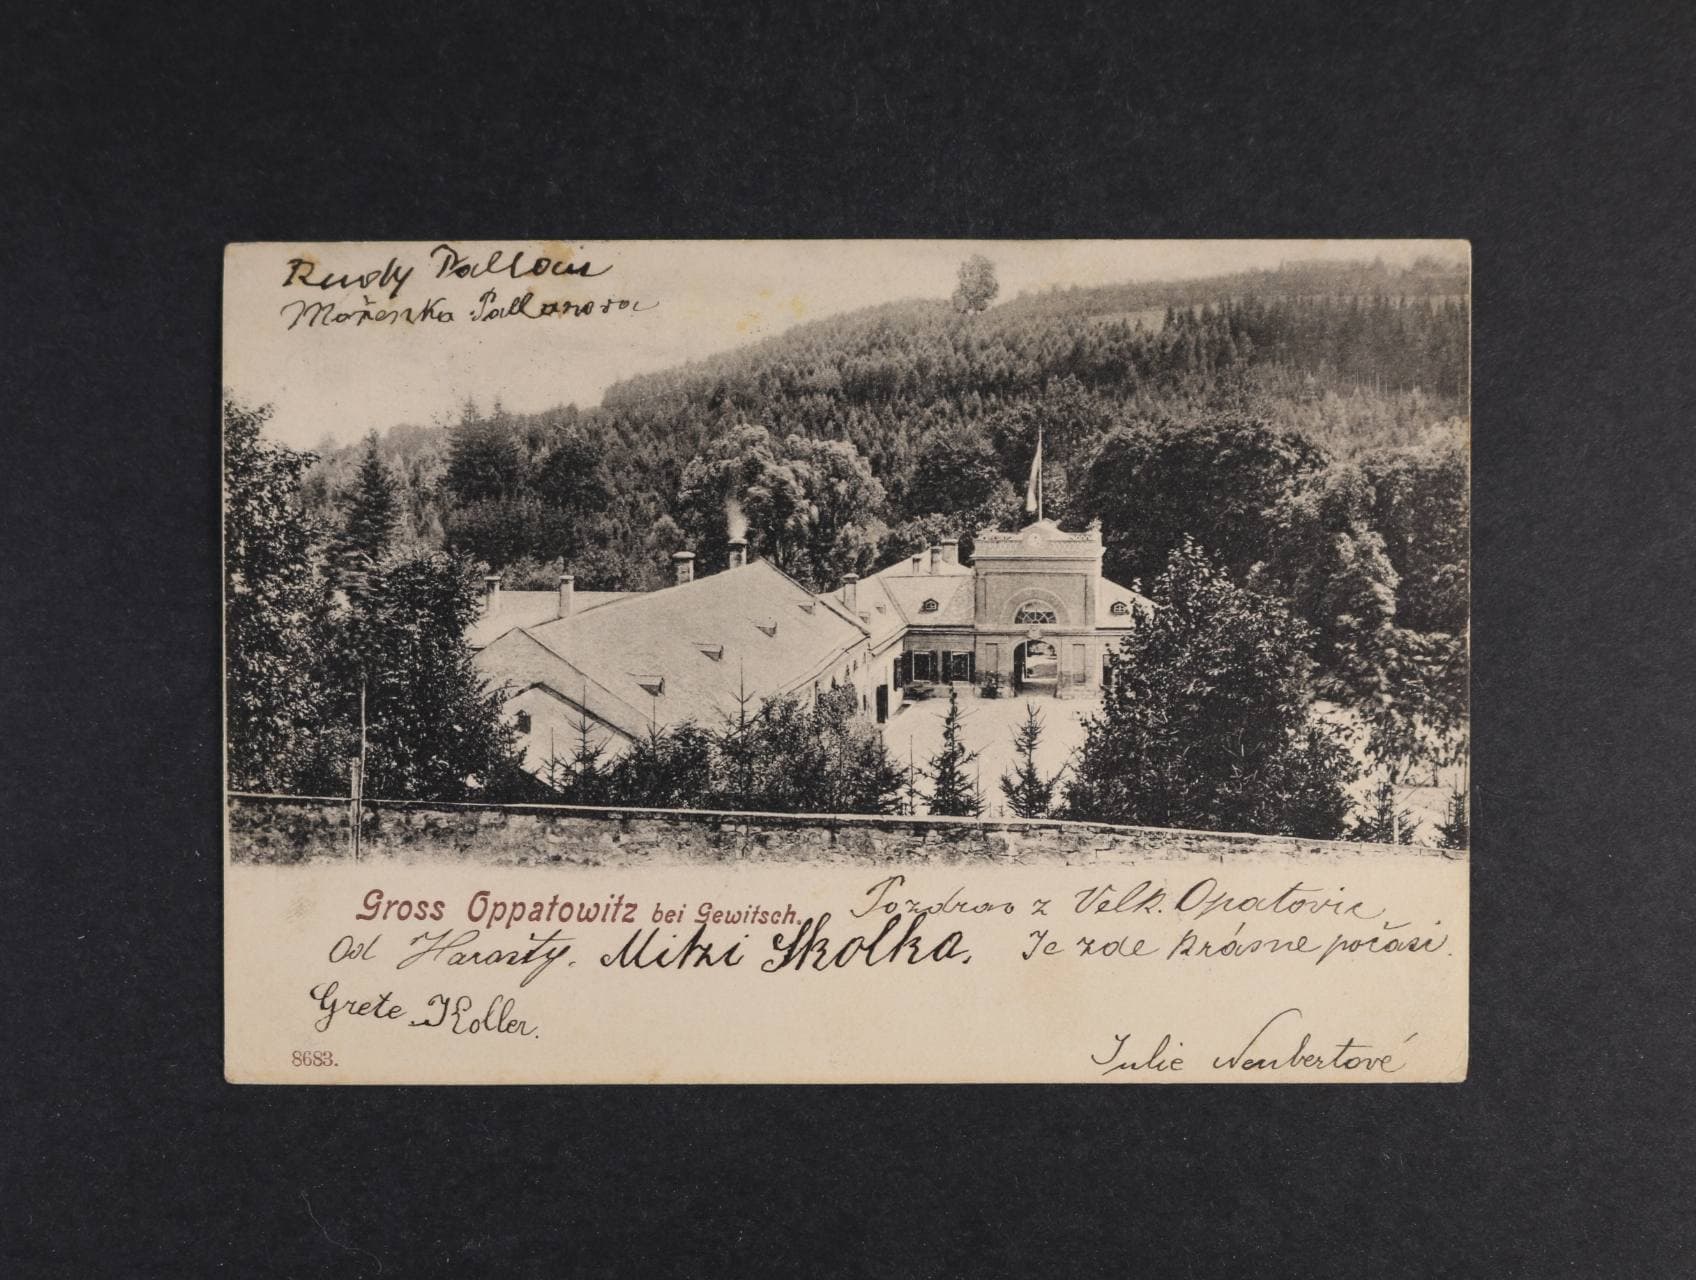 Rudy Pallan
Mařenka Pallanova
Gross Oppatowitz bei Gewitsch. Pozdrav z Velk. Opatovic
Od Harašty. Mitzi Skolka. Je zde krásne počasí.
Grete Koller.
8683. Julie Neubertové